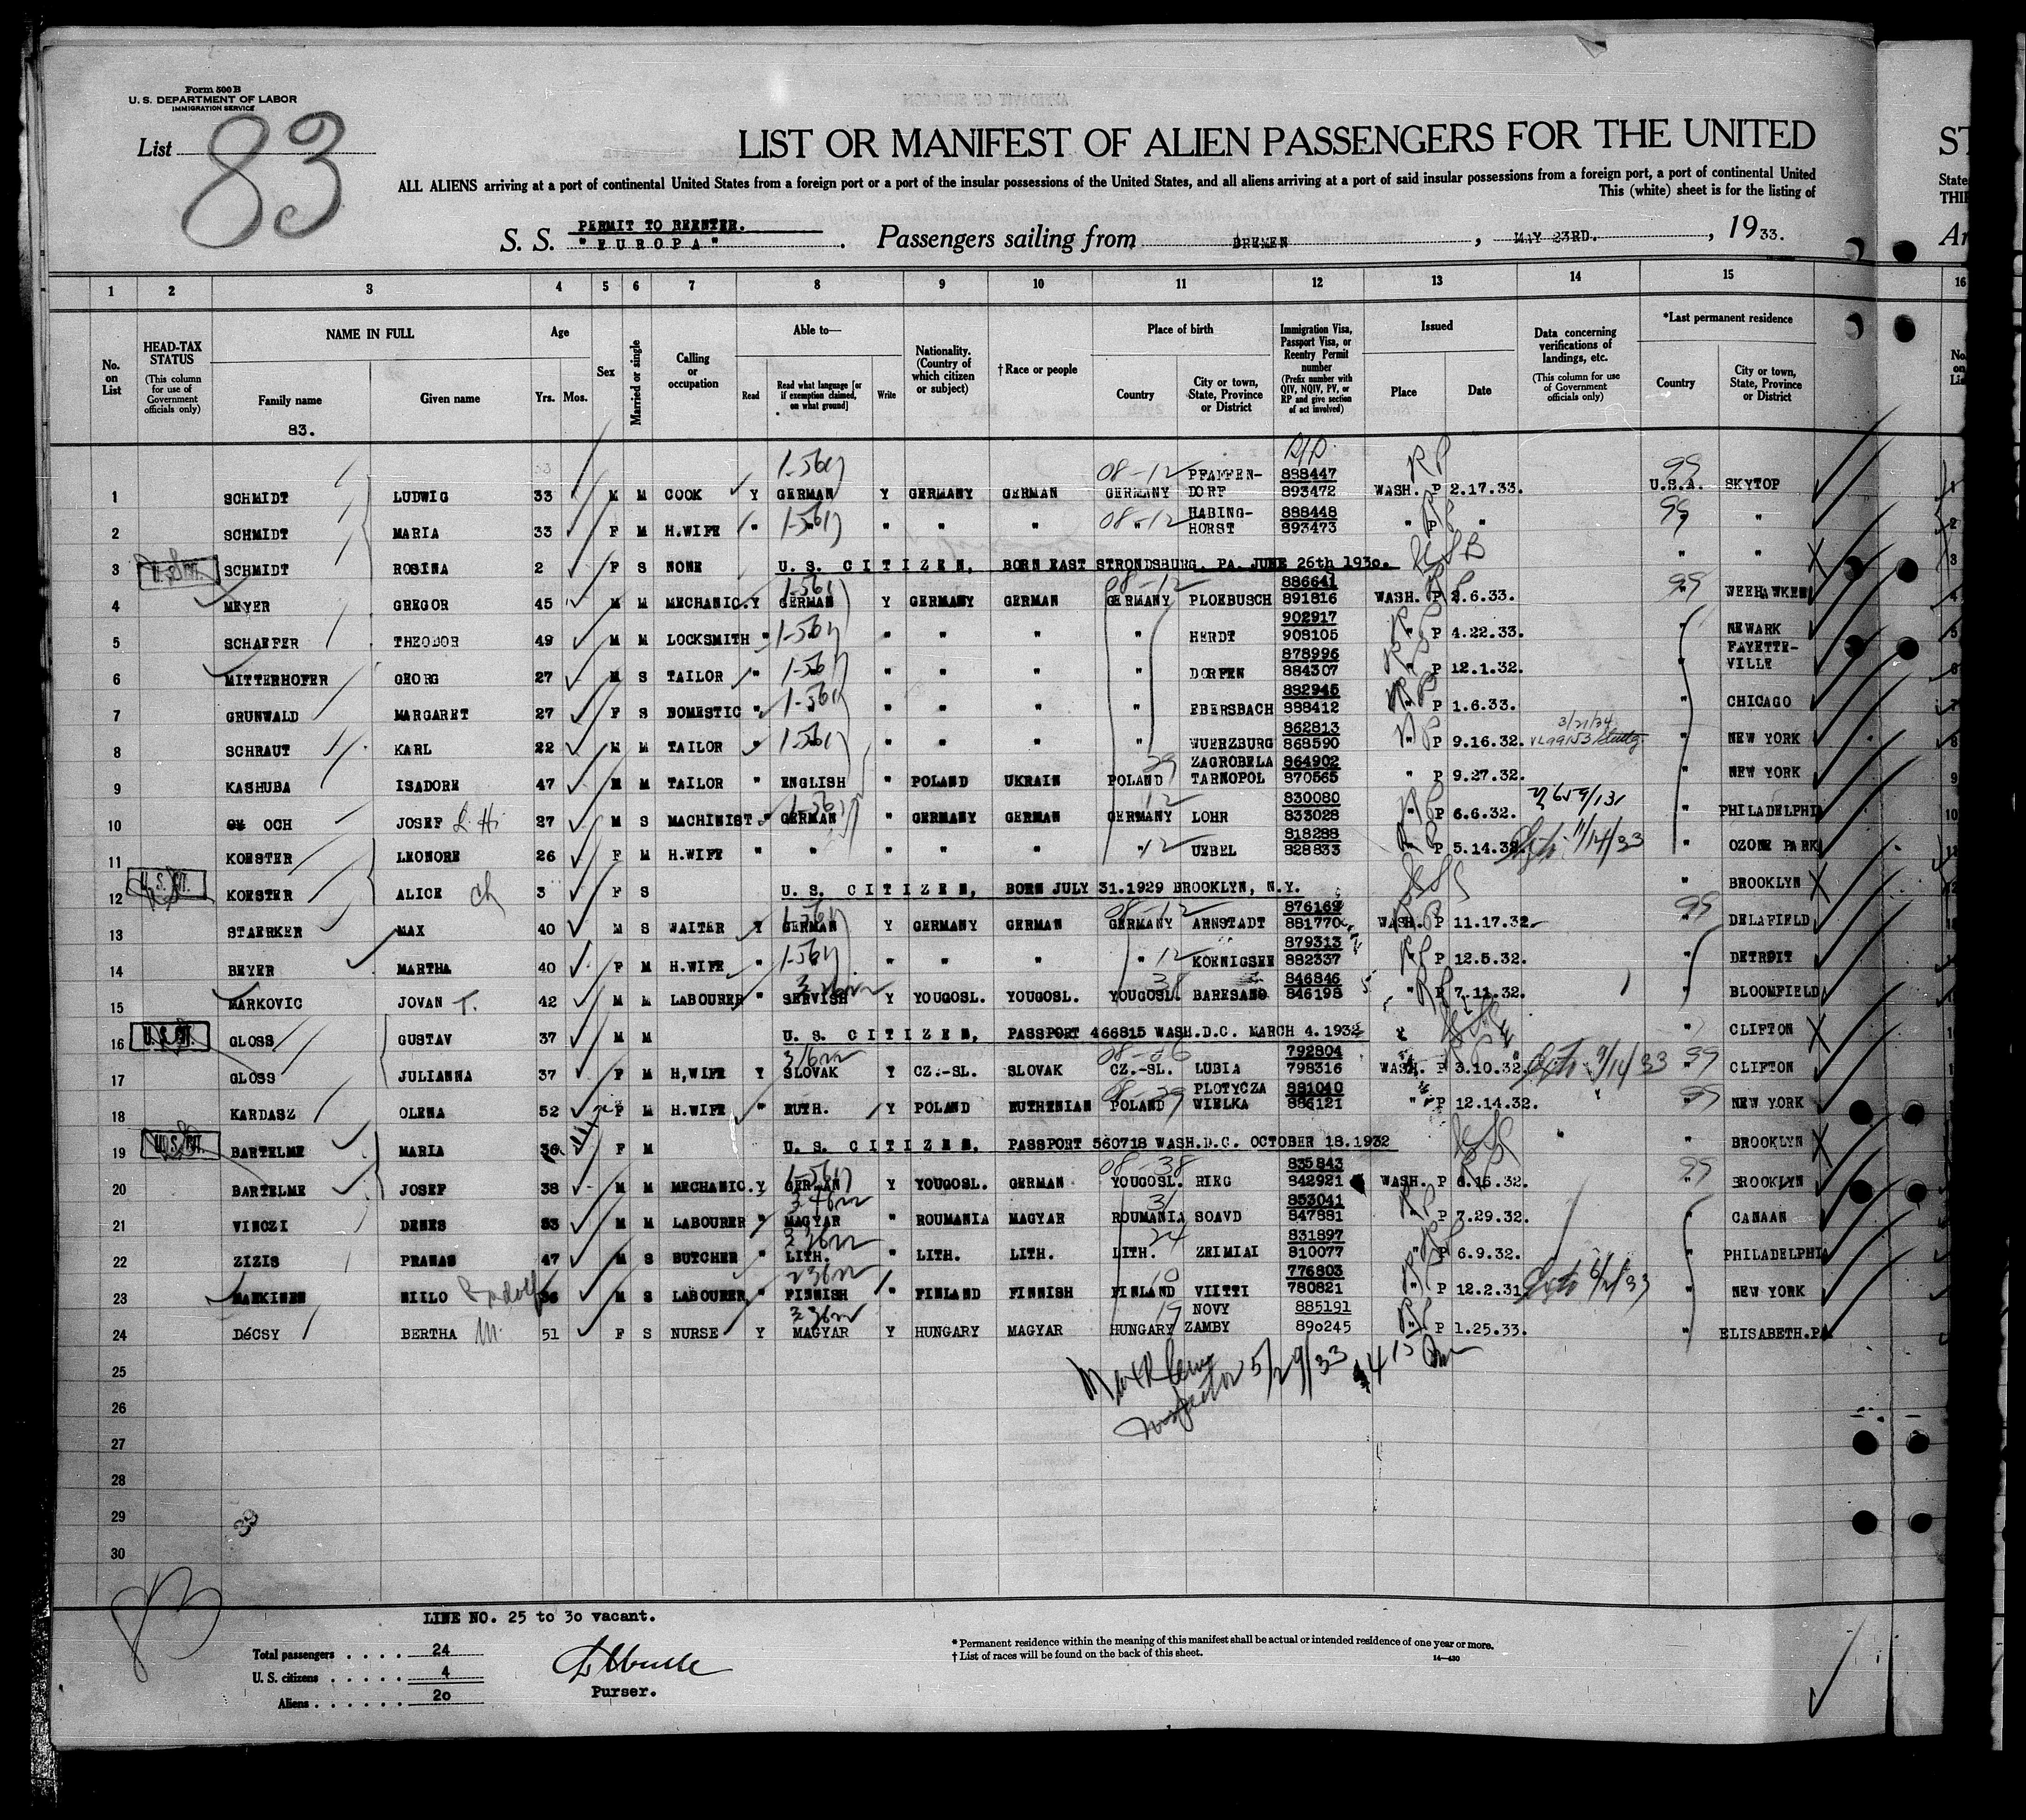 Form 500 B
U. S. DEPARTMENT OF LABOR
IMMIGRATION SERVICE
List 83
LIST OR MANIFEST OF ALIEN PASSENGERS FOR THE UNITED
ST
ALL ALIENS arriving at a port of continental United States from a foreign port or a port of the insular possessions of the United States, and all aliens arriving at a port of said insular possessions from a foreign port, a port of continental United
State
This (white) sheet is for the listing of
THI
PERMIT TO REENTER.
S. S. "EUROPA". Passengers sailing from BREMEN, MAY 23RD., 1933.
Ar
1 2 3 4 5 6 7 8 9 10 11 12 13 14 15 16
No. on List
HEAD-TAX STATUS
(This column for use of Government officials only)
NAME IN FULL
Family name
Given name
83.
Age
Yrs. Mos.
Sex
Married or single
Calling or occupation
Able to—
Read
Read what language [or if exemption claimed, on what ground]
Write
Nationality. (Country of which citizen or subject)
† Race or people
Place of birth
Country
City or town, State, Province or District
Immigration Visa, Passport Visa, or Reentry Permit number
(Prefix number with QIV, NQIV, PV, or RP and give section of act involved)
Issued
Place
Date
Data concerning verifications of landings, etc.
(This column for use of Government officials only)
*Last permanent residence
Country
City or town, State, Province or District
1 SCHMIDT LUDWIG 33 M M COOK Y GERMAN Y GERMANY GERMAN GERMANY PFAFFEN-DORF 888447 893472 WASH. P 2.17.33. U.S.A. SKYTOP
2 SCHMIDT MARIA 33 F M H.WIFE " " " " " " HABING-HORST 888448 893473 " P " " "
3 U.S. CIT. SCHMIDT ROSINA 2 F S NONE U. S. CITIZEN, BORN EAST STRONDSBURG, PA. JUNE 26th 1930. " "
4 MEYER GREGOR 45 M M MECHANIC. Y GERMAN Y GERMANY GERMAN GERMANY PLOEBUSCH 886641 891816 WASH. P 2.6.33. " WEEHAWKEN
5 SCHAEFER THEODOR 49 M M LOCKSMITH " " " " " " HERDT 902917 908105 " P 4.22.33. " NEWARK
6 MITTERHOFER GEORG 27 M S TAILOR " " " " " " DORFEN 878996 884307 " P 12.1.32. " FAYETTE-VILLE
7 GRUNWALD MARGARET 27 F S DOMESTIC " " " " " " EBERSBACH 882945 888412 " P 1.6.33. " CHICAGO
8 SCHRAUT KARL 22 M M TAILOR " " " " " " WUERZBURG 862813 868590 " P 9.16.32. 3/21/34 " NEW YORK
9 KASHUBA ISADORE 47 M M TAILOR " ENGLISH " POLAND UKRAIN POLAND ZAGROBELA TARNOPOL 864902 870565 " P 9.27.32. " NEW YORK
10 OCH JOSEF 27 M S MACHINIST. " GERMAN " GERMANY GERMAN GERMANY LOHR 830080 833028 " P 6.6.32. " PHILADELPHIA
11 KOESTER LEONORE 26 F M H.WIFE " " " " " " UEBEL 818288 828833 " P 5.14.32. 11/14/33 " OZONE PARK
12 U.S. CIT. KOESTER ALICE ch 3 F S U. S. CITIZEN, BORN JULY 31.1929 BROOKLYN, N.Y. " BROOKLYN
13 STAERKER MAX 40 M S WAITER Y GERMAN Y GERMANY GERMAN GERMANY ARNSTADT 876169 881770 WASH. P 11.17.32. " DELAFIELD
14 BEYER MARTHA 40 F M H.WIFE " " " " " " KOENIGSEE 879313 882337 P 12.5.32. " DETROIT
15 MARKOVIC JOVAN T. 42 M M LABOURER " SERVISH Y YOUGOSL. YOUGOSL. YOUGOSL. BARESANO 846846 846198 " P 7.11.32. " BLOOMFIELD
16 U.S. CIT. GLOSS GUSTAV 37 M M U. S. CITIZEN, PASSPORT 466815 WASH.D.C. MARCH 4.1932 " CLIFTON
17 GLOSS JULIANNA 37 F M H,WIFE Y SLOVAK Y CZ.-SL. SLOVAK CZ.-SL. LUBIA 792804 798316 WASH. P 3.10.32. 9/14/33 " CLIFTON
18 KARDASZ OLENA 52 F M H.WIFE " RUTH. Y POLAND RUTHENIAN POLAND PLOTYCZA WIELKA 881040 886121 " P 12.14.32. " NEW YORK
19 U.S. CIT. BARTELME MARIA 36 F M U. S. CITIZEN, PASSPORT 560718 WASH.D.C. OCTOBER 18.1932 " BROOKLYN
20 BARTELME JOSEF 38 M M MECHANIC. Y GERMAN Y YOUGOSL. GERMAN YOUGOSL. RIEG 835843 842921 WASH. P 6.15.32. " BROOKLYN
21 VINCZI DENES 53 M M LABOURER " MAGYAR " ROUMANIA MAGYAR ROUMANIA SOAVD 853041 847881 P 7.29.32. " CANAAN
22 ZIZIS PRANAS 47 M S BUTCHER " LITH. " LITH. LITH. LITH. ZEIMIAI 831897 810077 " P 6.9.32. " PHILADELPHIA
23 MANKINEN NIILO Rudolf 36 M S LABOURER " FINNISH " FINLAND FINNISH FINLAND VIITTI 776803 780821 " P 12.2.31. " NEW YORK
24 DéCSY BERTHA M. 51 F S NURSE Y MAGYAR Y HUNGARY MAGYAR HUNGARY NOVY ZAMBY 885191 890245 " P 1.25.33. " ELISABETH.PA
25
Inspector 5/29/33
26
27
28
29
30
83
LINE NO. 25 to 30 vacant.
Total passengers . . . . 24
U. S. citizens . . . . . 4
Aliens . . . . . . 20
Purser.
* Permanent residence within the meaning of this manifest shall be actual or intended residence of one year or more.
† List of races will be found on the back of this sheet.
14—430